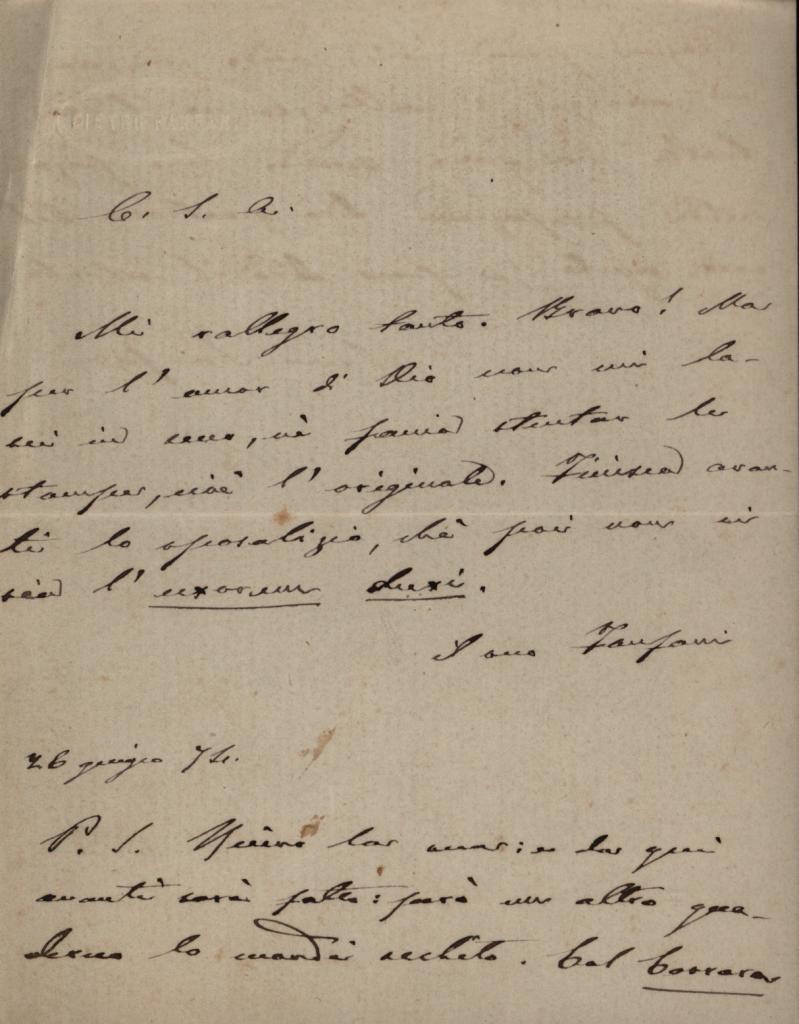 C. S. A.
Mi rallegro tanto. Bravo! Ma
per l' amor di Dio non mi la-
sci in seno, nè faccia stentar le
stampe, cioè l' originale. Finisca avan-
ti lo sposalizio, chè poi non ci
sia l' uxorem duxi.
Il suo Fanfani
26 giugno 74.
P. S. la sua: e da qui
avanti sarà fatto: però un altro qua-
derno lo mandi subito. Col Corrara